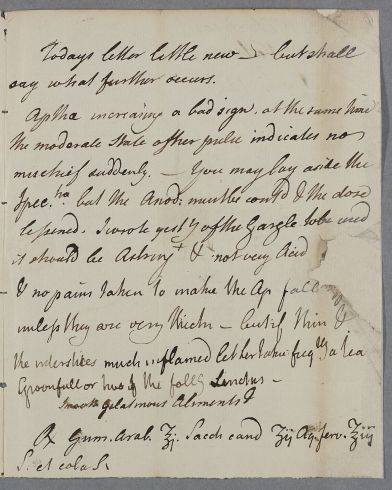 Todays letter little new – but shall
say what further occurs.
Apthæ increasing a bad sign, at the same time
the moderate state of her pulse indicates no
mischief suddenly. – You may lay aside the
Ipec.ha but the Anod: must be cont'd & the dose
lessened. I wrote yest'y of the Gargle to be used
it should be Astring.t & not very Acid
& no pains taken to make the Ap fall
unless they are very thick – but if thin &
the underskin much inflamed let her take freq.ly a tea
spoonfull or two of the foll.g Linctus –
Smooth Gelatinous Aliments
℞ Gum. Arab. ʒj. Sacch cand ʒij Aq. ferv. ℥iij
S. et cola S.